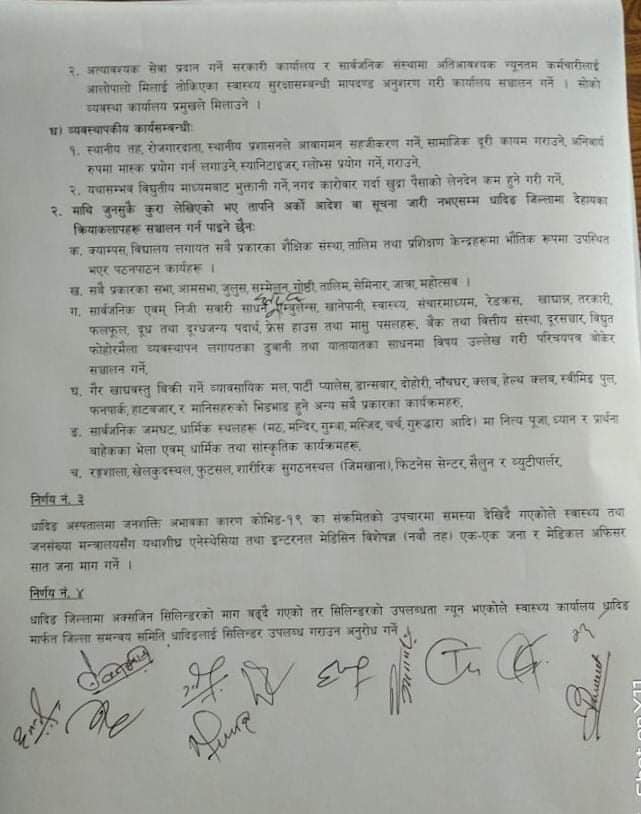 २. अत्यावश्यक सेवा प्रदान गर्ने सरकारी कार्यालय र सार्वजनिक संस्थामा अतिआवश्यक न्यूनतम कर्मचारीलाई
आलोपालो मिलाई तोकिएका स्वास्थ्य सुरक्षासम्बन्धी मापदण्ड अनुशरण गरी कार्यालय सञ्चालन गर्ने । सोको
व्यवस्था कार्यालय प्रमुखले मिलाउने ।
घ) व्यवस्थापकीय कार्यसम्बन्धीः
१. स्थानीय तह, रोजगारदाता, स्थानीय प्रशासनले आवागमन सहजीकरण गर्ने, सामाजिक दूरी कायम गराउने, अनिवार्य
रुपमा मास्क प्रयोग गर्न लगाउने, स्यानिटाइजर, ग्लोभ्स प्रयोग गर्ने, गराउने,
२. यथासम्भव विद्युतीय माध्यमबाट भुक्तानी गर्ने, नगद कारोबार गर्दा खुद्रा पैसाको लेनदेन कम हुने गरी गर्ने,
२. माथि जुनसुकै कुरा लेखिएको भए तापनि अर्को आदेश वा सूचना जारी नभएसम्म धादिङ जिल्लामा देहायका
क्रियाकलापहरू सञ्चालन गर्न पाइने छैनः
क. क्याम्पस, विद्यालय लगायत सबै प्रकारका शैक्षिक संस्था, तालिम तथा प्रशिक्षण केन्द्रहरूमा भौतिक रूपमा उपस्थित
भएर पठनपाठन कार्यहरू ।
ख. सबै प्रकारका सभा, आमसभा, जुलुस, सम्मेलन, गोष्ठी, तालिम, सेमिनार, जात्रा, महोत्सव ।
ग. सार्वजनिक एवम् निजी सवारी साधन एम्बुलेन्स, खानेपानी, स्वास्थ्य, संचारमाध्यम, रेडक्रस, खाद्यान्न, तरकारी,
फलफूल, दूध तथा दूग्धजन्य पदार्थ, फ्रेस हाउस तथा मासु पसलहरू, बैंक तथा वित्तीय संस्था, दूरसञ्चार, विद्युत
फोहोरमैला व्यवस्थापन लगायतका ढुवानी तथा यातायातका साधनमा विषय उल्लेख गरी परिचयपत्र बोकेर
सञ्चालन गर्ने,
घ. गैर खाद्यवस्तु बिक्री गर्ने व्यावसायिक मल, पार्टी प्यालेस, डान्सबार, दोहोरी, नाँचघर, क्लब, हेल्थ क्लब, स्वीमिङ पुल,
फनपार्क, हाटबजार, र मानिसहरूको भिडभाड हुने अन्य सबै प्रकारका कार्यक्रमहरु,
ङ. सार्वजनिक जमघट, धार्मिक स्थलहरू (मठ, मन्दिर, गुम्बा, मस्जिद, चर्च, गुरुद्धारा आदि) मा नित्य पूजा, ध्यान र प्रार्थना
बाहेकका भेला एवम् धार्मिक तथा सांस्कृतिक कार्यक्रमहरू,
च. रङ्गशाला, खेलकुदस्थल, फुटसल, शारीरिक सुगठनस्थल (जिमखाना), फिटनेस सेन्टर, सैलुन र ब्युटीपार्लर,
निर्णय नं. ३
धादिङ अस्पतालमा जनशक्ति अभावका कारण कोभिड-१९ का संक्रमितको उपचारमा समस्या देखिदै गएकोले स्वास्थ्य तथा
जनसंख्या मन्त्रालयसँग यथाशीघ्र एनेस्थेसिया तथा इन्टरनल मेडिसिन विशेषज्ञ (नवौं तह) एक-एक जना र मेडिकल अफिसर
सात जना माग गर्ने ।
निर्णय नं. ४
धादिङ जिल्लामा अक्सजिन सिलिन्डरको माग बढ्दै गएको तर सिलिन्डरको उपलब्धता न्यून भएकोले स्वास्थ्य कार्यालय धादिङ
मार्फत जिल्ला समन्वय समिति धादिङलाई सिलिन्डर उपलब्ध गराउन अनुरोध गर्ने